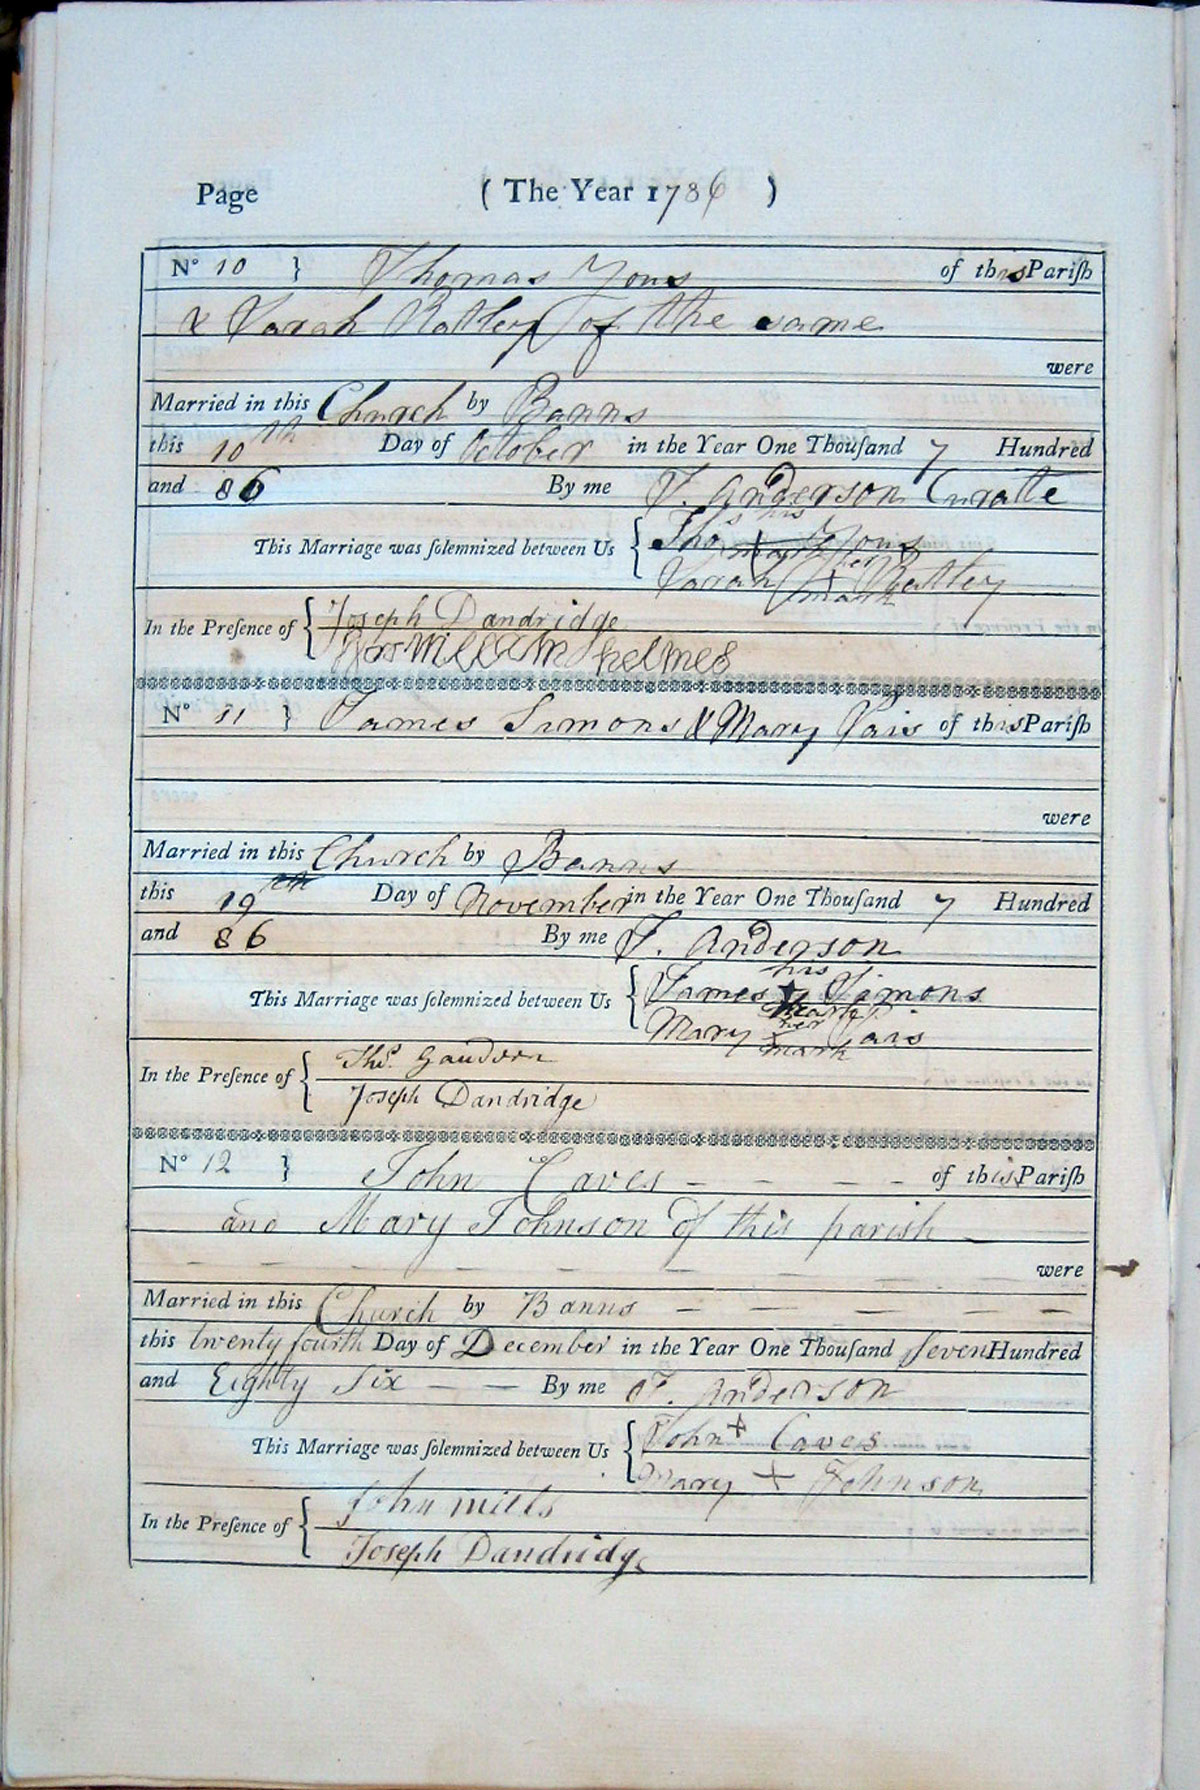 Page ( The Year 1786 )
No 10 } Thomas Yons of this Parish
& Sarah Ratley of the same
were
Married in this Church by Banns
this 10th Day of October in the Year One Thousand 7 Hundred
and 86 By me J. Anderson Curatte
This Marriage was solemnized between Us { Thos his + mark Yons
Sarah her + mark Ratley
In the Presence of { Joseph Dandridge
William helmes
No 11 } James Simons & Mary Pais of this Parish
were
Married in this Church by Banns
this 19th Day of November in the Year One Thousand 7 Hundred
and 86 By me J. Anderson
This Marriage was solemnized between Us { James his mark Simons
Mary her + mark Pais
In the Presence of { Thos.
Joseph Dandridge
No 12 } John Caves - - - - of this Parish
and Mary Johnson of this parish -
were
Married in this Church by Banns - - - - -
this twenty fourth Day of December in the Year One Thousand Seven Hundred
and Eighty Six - - By me J. Anderson
This Marriage was solemnized between Us { John + Caves
Mary + Johnson
In the Presence of { John mills
Joseph Dandridge